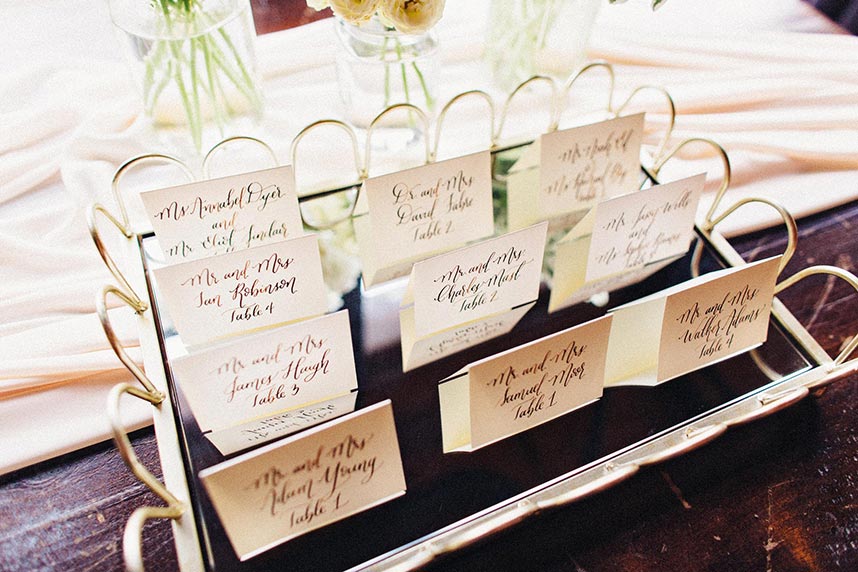 Ms Annabel Dyer
and
Mr Eliot Sinclair
Dr and Mrs
David Sabre
Table 2
Mr
and
Mr and Mrs
Ian Robinson
Table 4
Mr and Mrs
Charles Must
Table 2
Mr Wells
and
Mr and Mrs
James Haugh
Table 3
Mr and Mrs
Samuel Moor
Table 1
Mr and Mrs
Walker Adams
Table 4
Mr and Mrs
Adam Young
Table 1